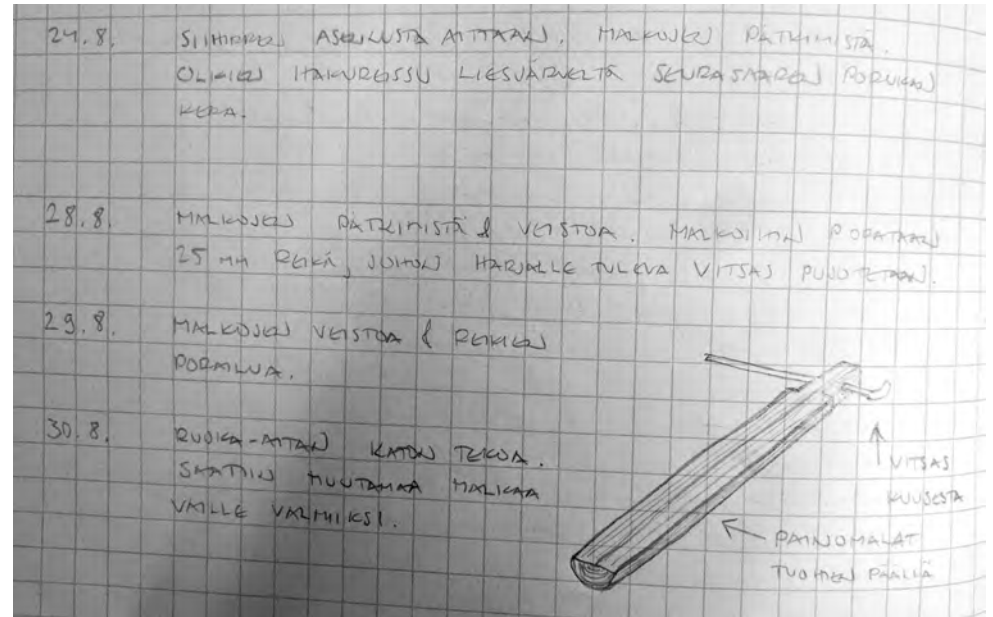 24.8. ASKILUSTA AITTAAN. MALKOJEN PÄTKIMISTÄ.
OLKIEN HAKUREISSU LIESJÄRVELTÄ SEURASAAREN PORUKAN
KERA.
28.8. MALKOJEN PÄTKIMISTÄ & VEISTOA. MALKOIHIN PORATAAN
25 MM REIKÄ, JOHON HARJALLE TULEVA VITSAS PUJOTETAAN.
29.8. MALKOJEN VEISTOA & REIKIEN
PORAILUA.
30.8. RUOKA-AITAN KATON TEKOA.
SAATIIN MUUTAMAA MALKAA
VAILLE VALMIIKSI.
VITSAS
KUUSESTA
PAINOMALAT
TUOHIEN PÄÄLLÄ